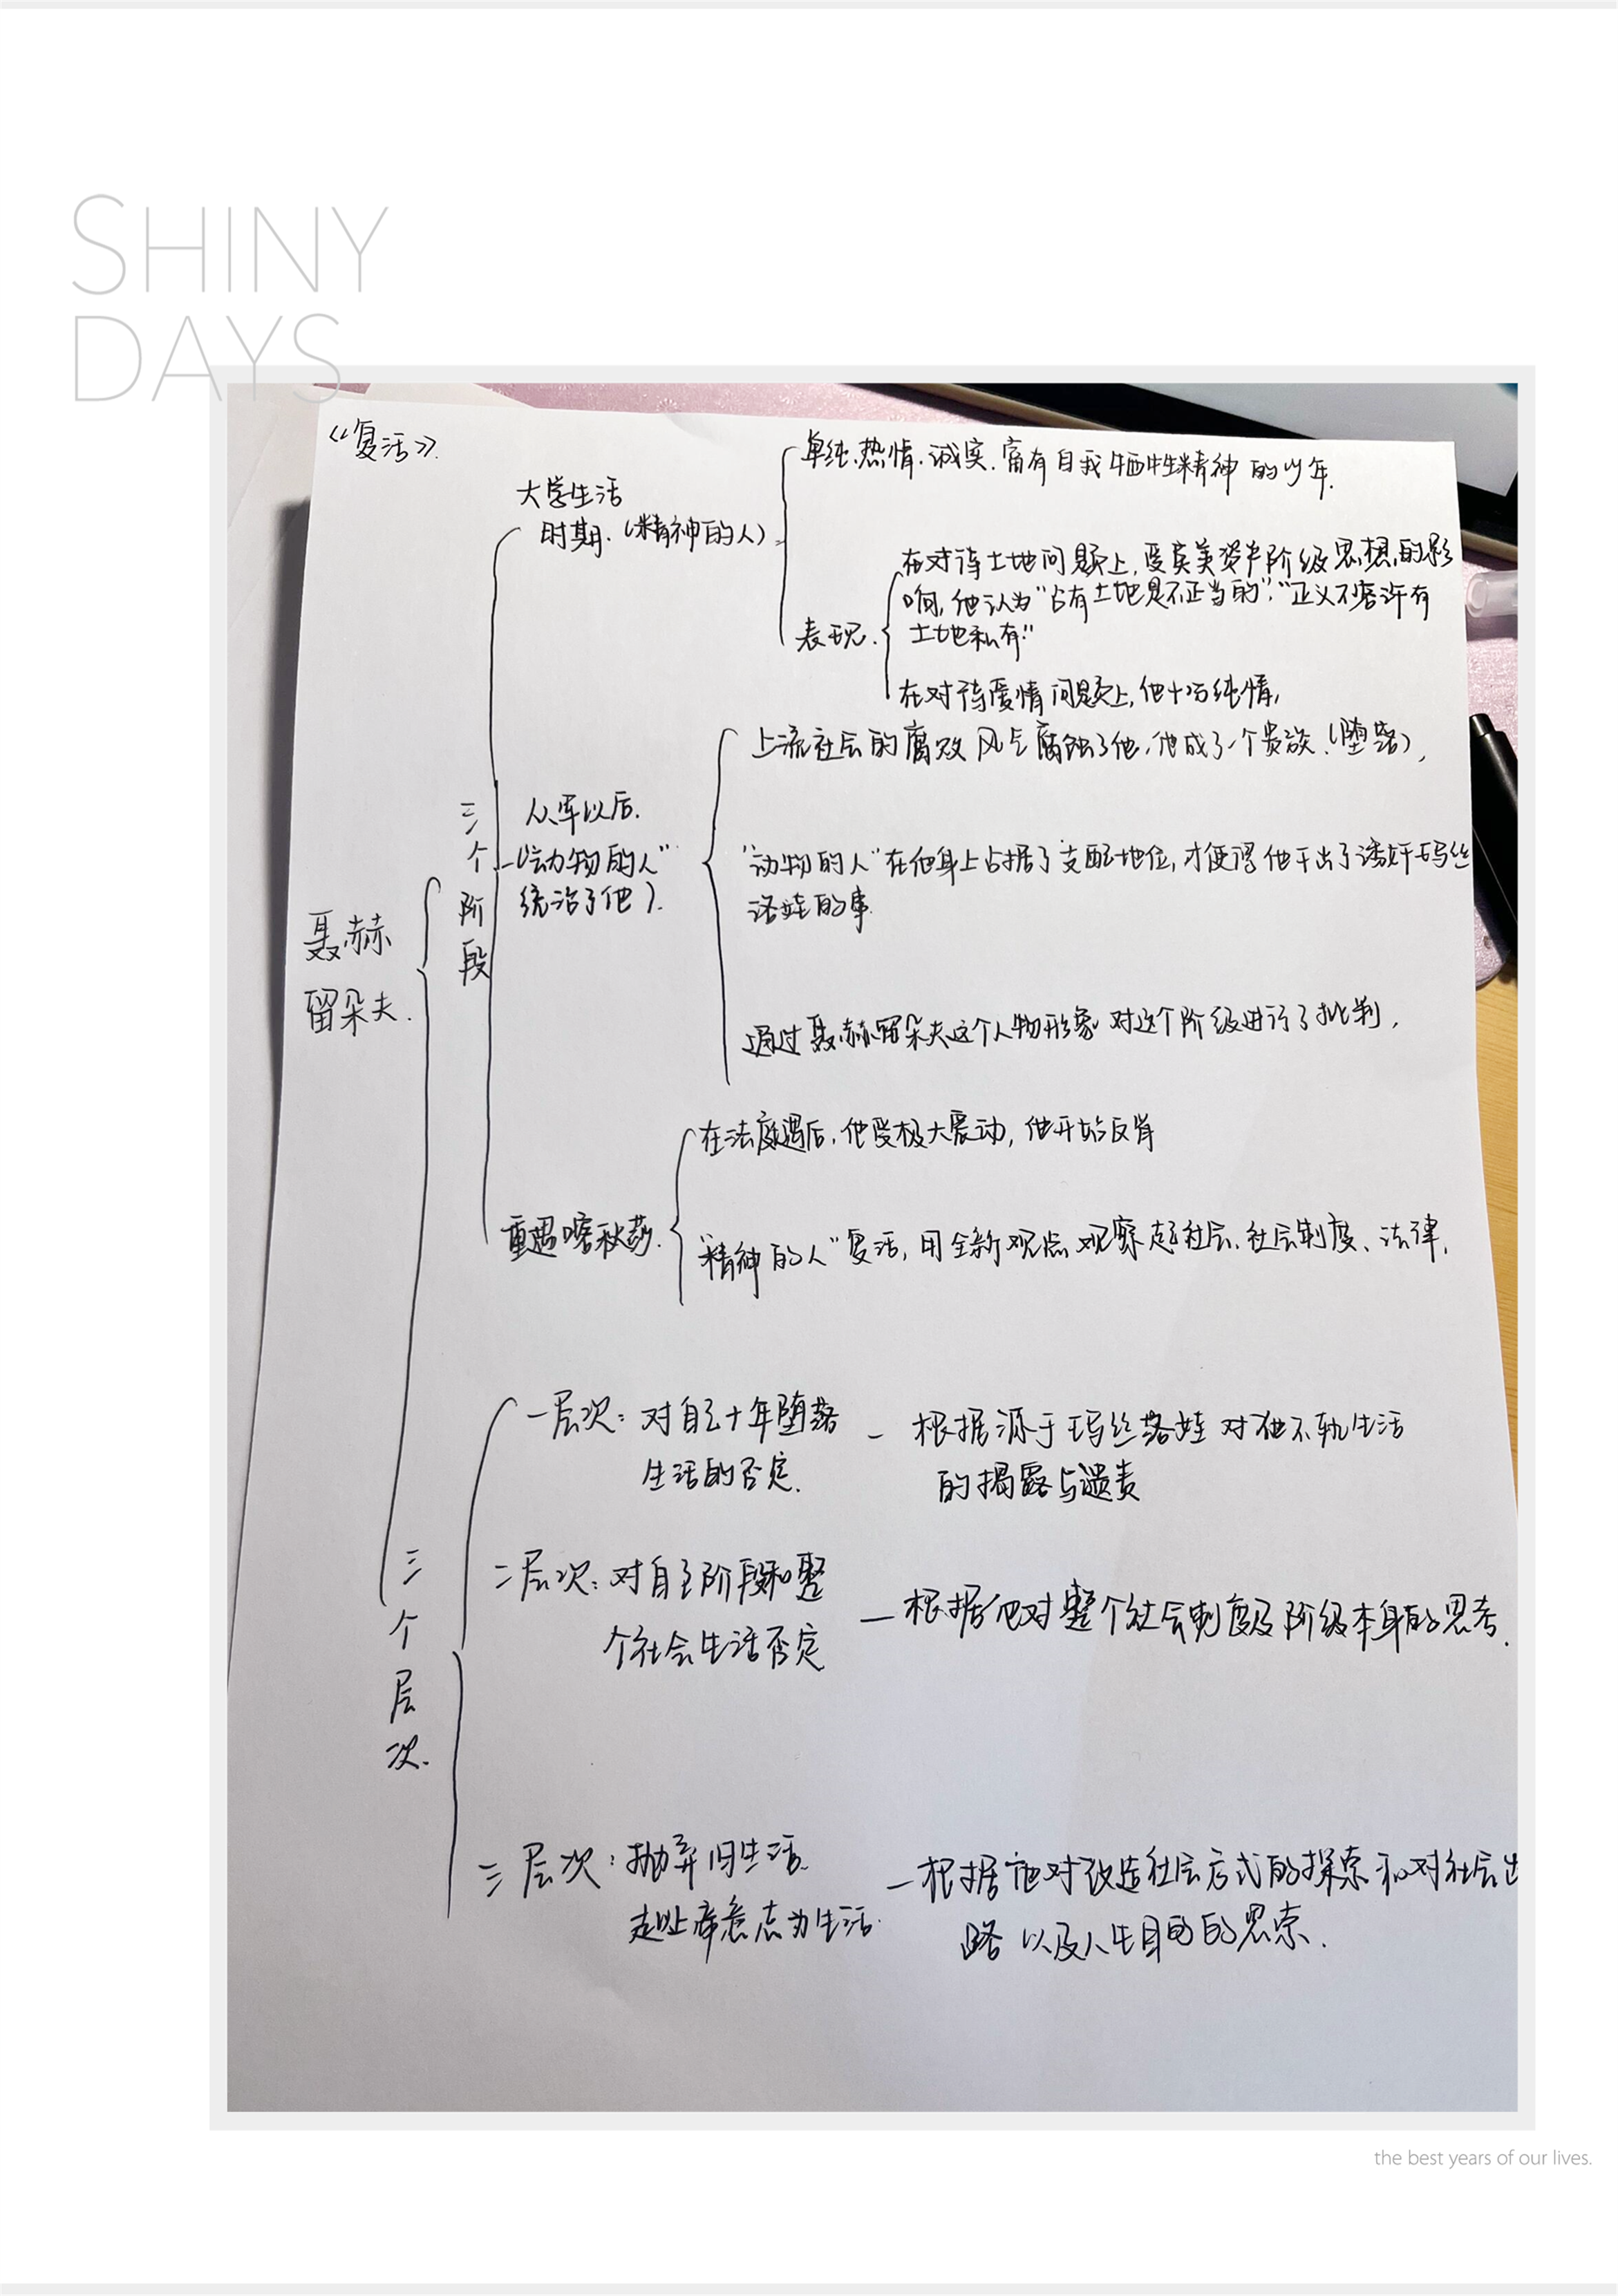 SHINY
DAYS
《复活》.
单纯.热情.诚实.富有自我牺牲精神的少年.
大学生活
时期.(精神的人)
在对待土地问题上,受英美资产阶级思想的影
响,他认为“占有土地是不正当的”,“正义不容许有
土地私有.”
表现.
在对待爱情问题上,他十分纯情,
上流社会的腐败风气腐蚀了他,他成了一个贵族.(堕落),
三个阶段
从军以后.
(“动物的人”
统治了他).
“动物的人”在他身上占据了支配地位,才使得他干出了诱奸玛丝
洛娃的事.
聂赫
留朵夫.
通过聂赫留朵夫这个人物形象对这个阶级进行了批判,
在法庭遇后,他受极大震动,他开始反省
重遇喀秋莎.
“精神的人”复活,用全新观点观察起社会.社会制度、法律,
一层次:对自己十年堕落
生活的否定.
- 根据源于玛丝洛娃对他不轨生活
的揭露与谴责
三个层次.
二层次:对自己阶段和整
个社会生活否定
- 根据他对整个社会制度及阶级本身的思考.
三层次:抛弃旧生活.
为生活.
- 根据他对改造社会方式的探索和对社会出
路以及人生目的的思索.
the best years of our lives.